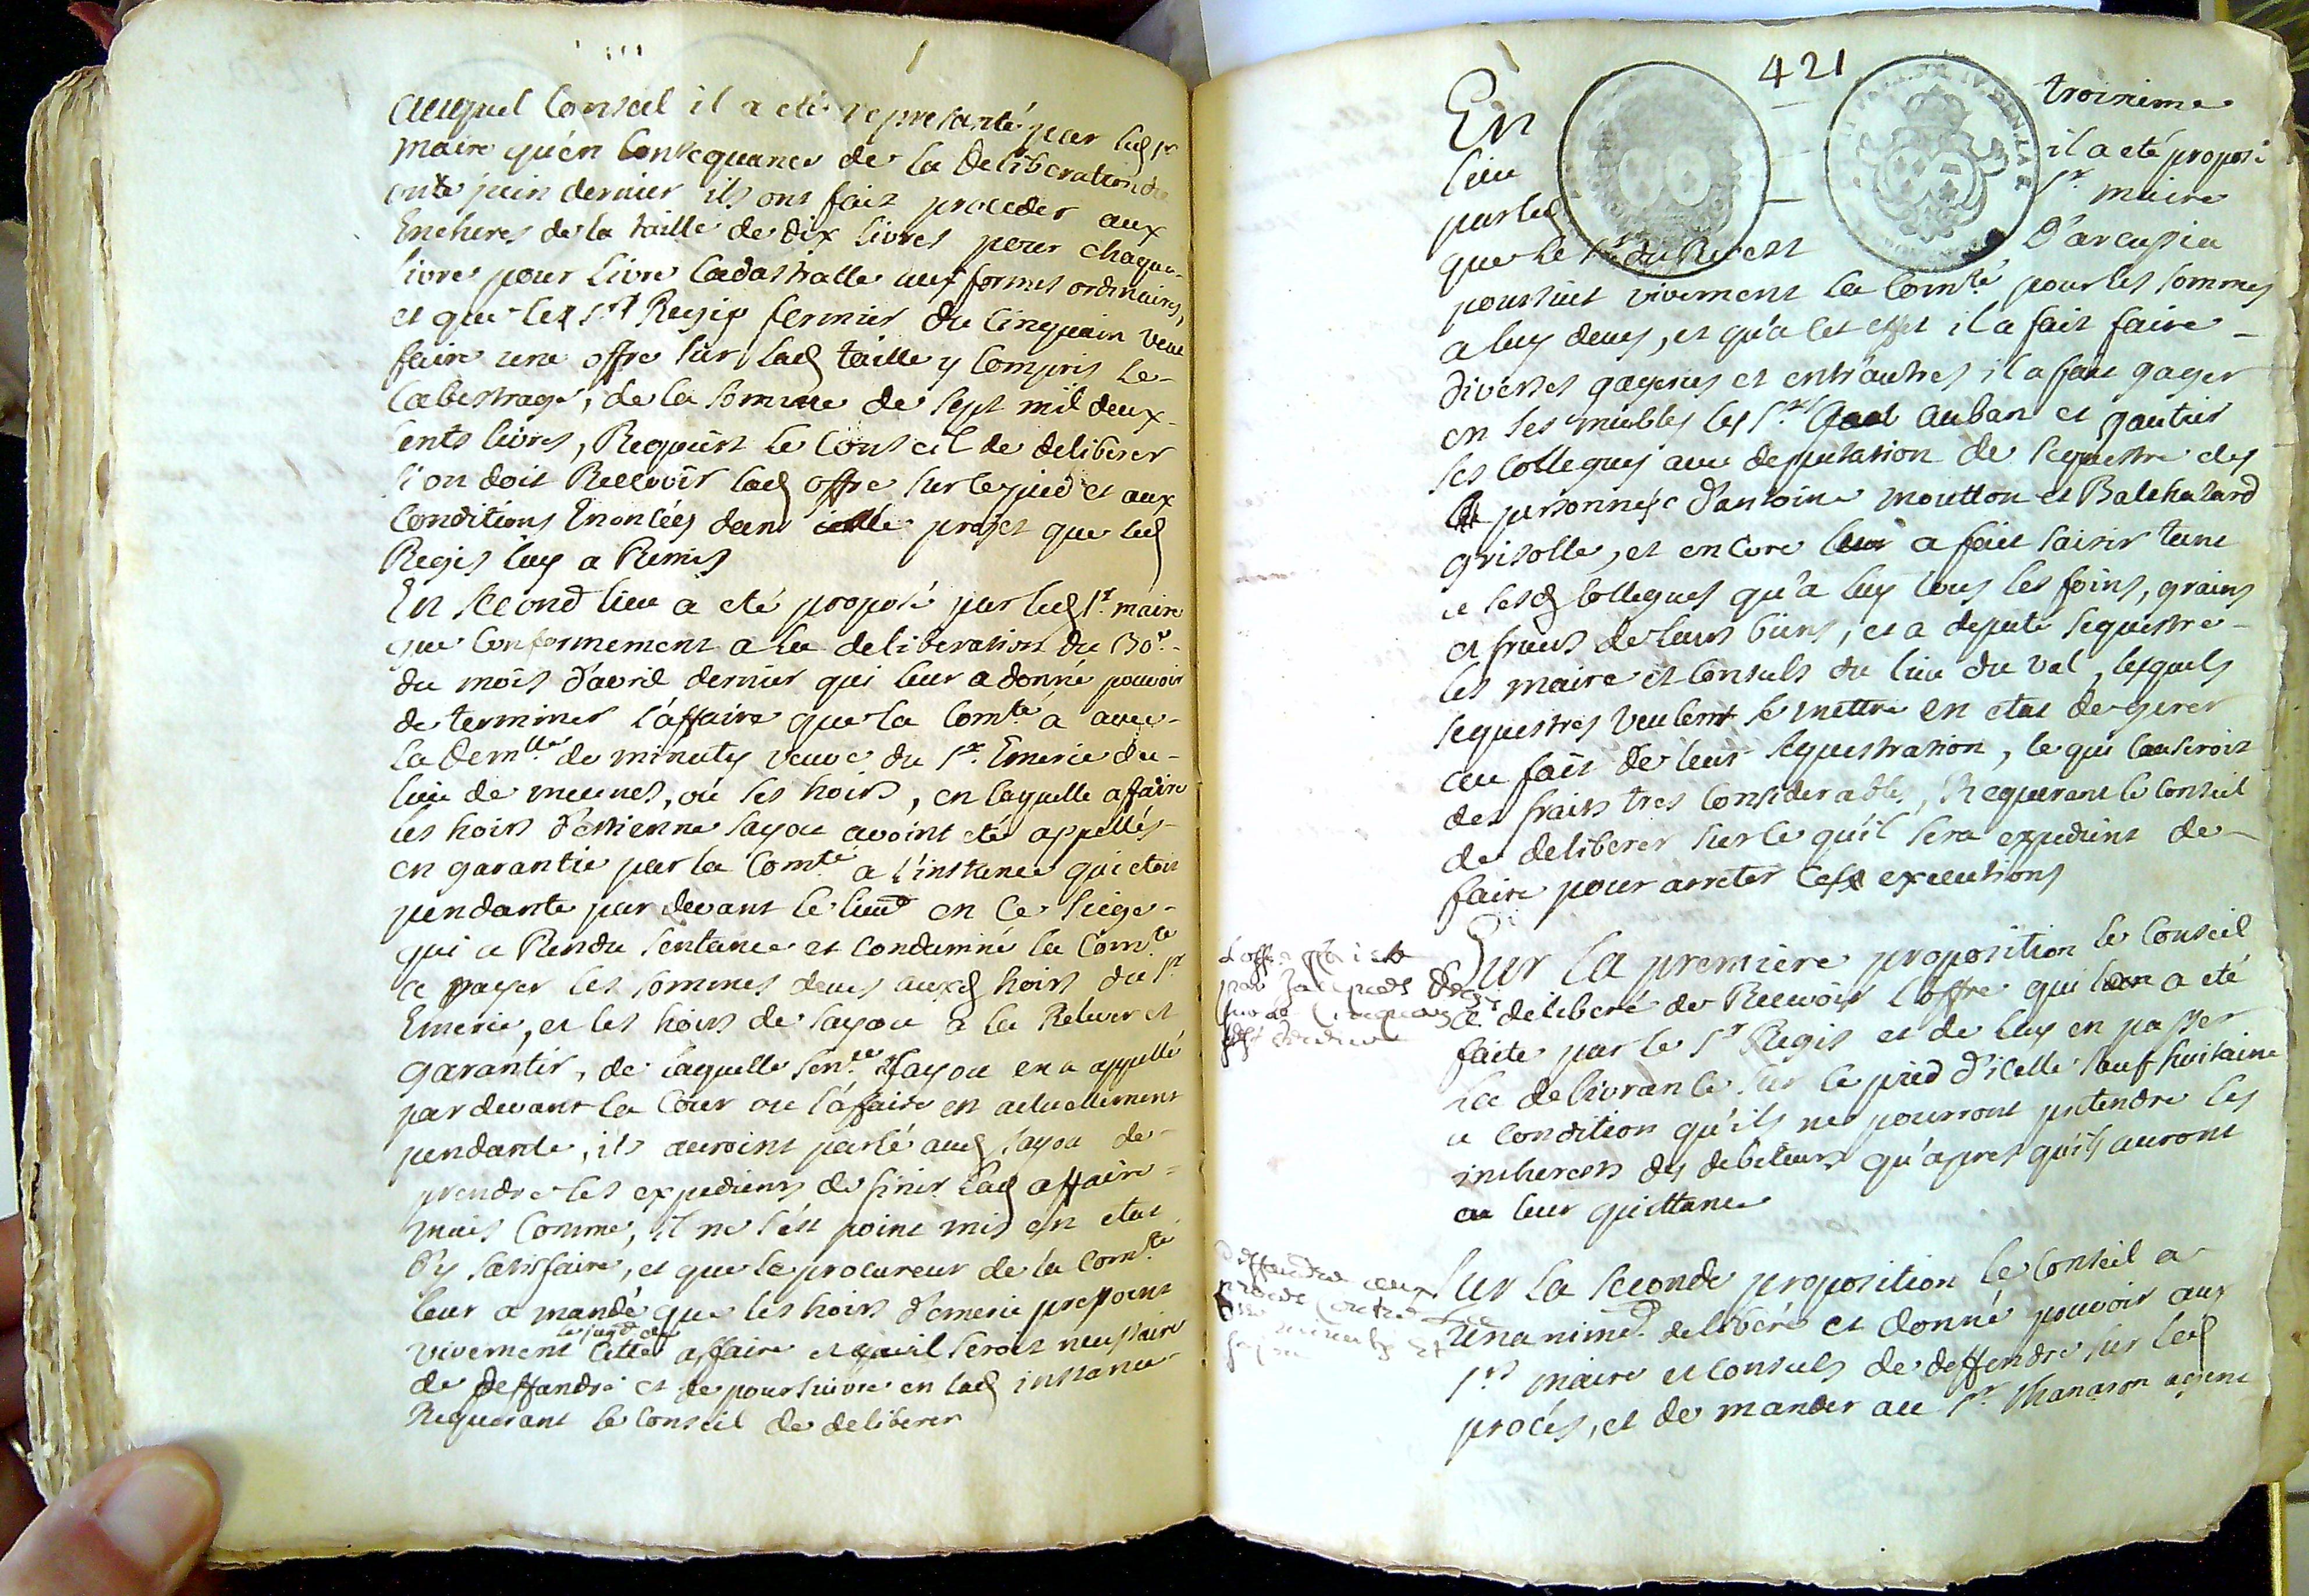 Auquel Conseil il a eté representé par led sr
maire qu'en Consequance de la deliberation du
onze juin dernier ils ont fait proceder aux
Encheres de la taille de dix livres pour chaque
livre pour livre Cadastralle aux formes ordinaires,
et que les srs Regis fermier du Cinquain veut
faire une offre sur lad taille y Compris le
Cabestrage, de la somme de sept mil deux
cents livres, Requiert le Conseil de deliberer
si on doit Recevoir lad offre sur le pied et aux
Conditions Enoncées dans projet que led
Regis luy a Remis
En second lieu a eté proposé par led sr. maire
que Conformement a la deliberation du 30e
du mois d'avril dernier qui leur a donné pouvoir
de terminer l'affaire que la Comté a avec
la demlle de minuty veuve du sr. Emeric du
lieu de meunes, ou ses hoirs, en laquelle affaire
les hoirs d'estienne fayou avoint eté appellés
en garantie par la Comté a l'instance qui etoit
pendante par devant le lieut en Ce siege
qui a Rendu sentance et Condamné la Comté
a payer les sommes deues auxd hoirs du sr
Emeric, et les hoirs de fayou a la Relever et
garantir, de laquelle sence fayou en a appellé
par devant la Cour ou l'affaire est actuellement
pendante, ils auroint parlé aud fayou de
prendre les expediens de finir lad affaire
mais Comme, il ne s'est point mis en etat
d'y satisfaire, et que le procureur de la Comté
leur a mandé que les hoirs d'emeric pressoint
le jugt de
vivement Cette affaire et qu'il seroit necessaire
de deffandre et de poursuivre en lad instance
Requerant le Conseil de deliberer
421
En troisieme
lieu il a eté proposé
par led sr. maire
que le sr du Revest D'arcussia
poursuit vivement la Comté pour les sommes
a luy deues, et qu'a Cet effet il a fait faire
diverses gageries et entr'autres il a fait gager
en ses meubles les srs auban et gautier
ses Collegues avec deputation de sequestre des
personnes d'antoine moutton et Balthazard
grisolle, et encore a fait saisir tant
a sesd Collegues qu'a luy tous les foins, grains
et fruits de leurs biens, et a deputé sequestre
les maire et Consuls du lieu du val, lesquels
sequestres veulent se mettre en etat de gerer
au fait de leur sequestration, ce qui Causeroit
des frais tres Considerables, Requerant le Conseil
de deliberer sur Ce qu'il sera expedient de
faire pour arreter Ces executions
L'offre faite
par Jacques Regis
sur le Cinquain
Sur la premiere proposition le Conseil
a deliberé de Recevoir l'offre qui a eté
faite par le sr Regis et de luy en passer
la delivrance sur le pied d'icelle sauf huitaine
a Condition qu'ils ne pourront pretendre les
incherces des debiteurs qu'apres qu'ils auront
eu leur quittance
deffandre aux
procés Contre la
dlle minuty et
fayou
Sur la seconde proposition le Conseil a
unanimet deliberé et donné pouvoir aux
srs maire et Consuls de deffendre sur led
procés, et de mander au sr Thanaron agent